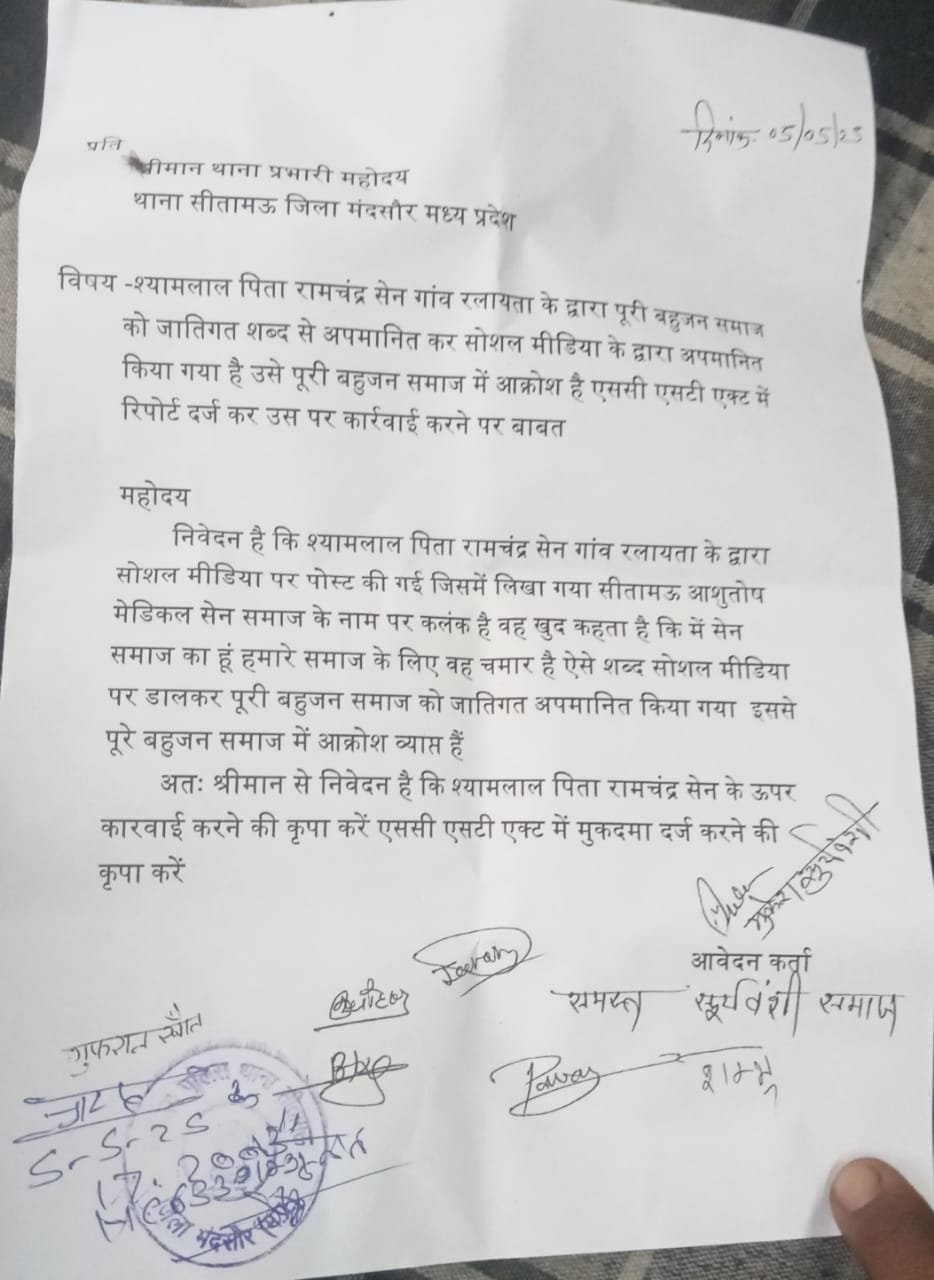 दिनांक: 05/05/25
प्रति
श्रीमान थाना प्रभारी महोदय
थाना सीतामऊ जिला मंदसौर मध्य प्रदेश
विषय -श्यामलाल पिता रामचंद्र सेन गांव रलायता के द्वारा पूरी बहुजन समाज
को जातिगत शब्द से अपमानित कर सोशल मीडिया के द्वारा अपमानित
किया गया है उसे पूरी बहुजन समाज में आक्रोश है एससी एसटी एक्ट में
रिपोर्ट दर्ज कर उस पर कार्रवाई करने पर बाबत
महोदय
निवेदन है कि श्यामलाल पिता रामचंद्र सेन गांव रलायता के द्वारा
सोशल मीडिया पर पोस्ट की गई जिसमें लिखा गया सीतामऊ आशुतोष
मेडिकल सेन समाज के नाम पर कलंक है वह खुद कहता है कि में सेन
समाज का हूं हमारे समाज के लिए वह चमार है ऐसे शब्द सोशल मीडिया
पर डालकर पूरी बहुजन समाज को जातिगत अपमानित किया गया इससे
पूरे बहुजन समाज में आक्रोश व्याप्त हैं
अतः श्रीमान से निवेदन है कि श्यामलाल पिता रामचंद्र सेन के ऊपर
कारवाई करने की कृपा करें एससी एसटी एक्ट में मुकदमा दर्ज करने की
कृपा करें
मुकेश सूर्यवंशी
आवेदन कर्ता
समस्त सूर्यवंशी समाज
Pavan
शम्भु
पुलिस थाना
5-5-25
जिला मंदसौर